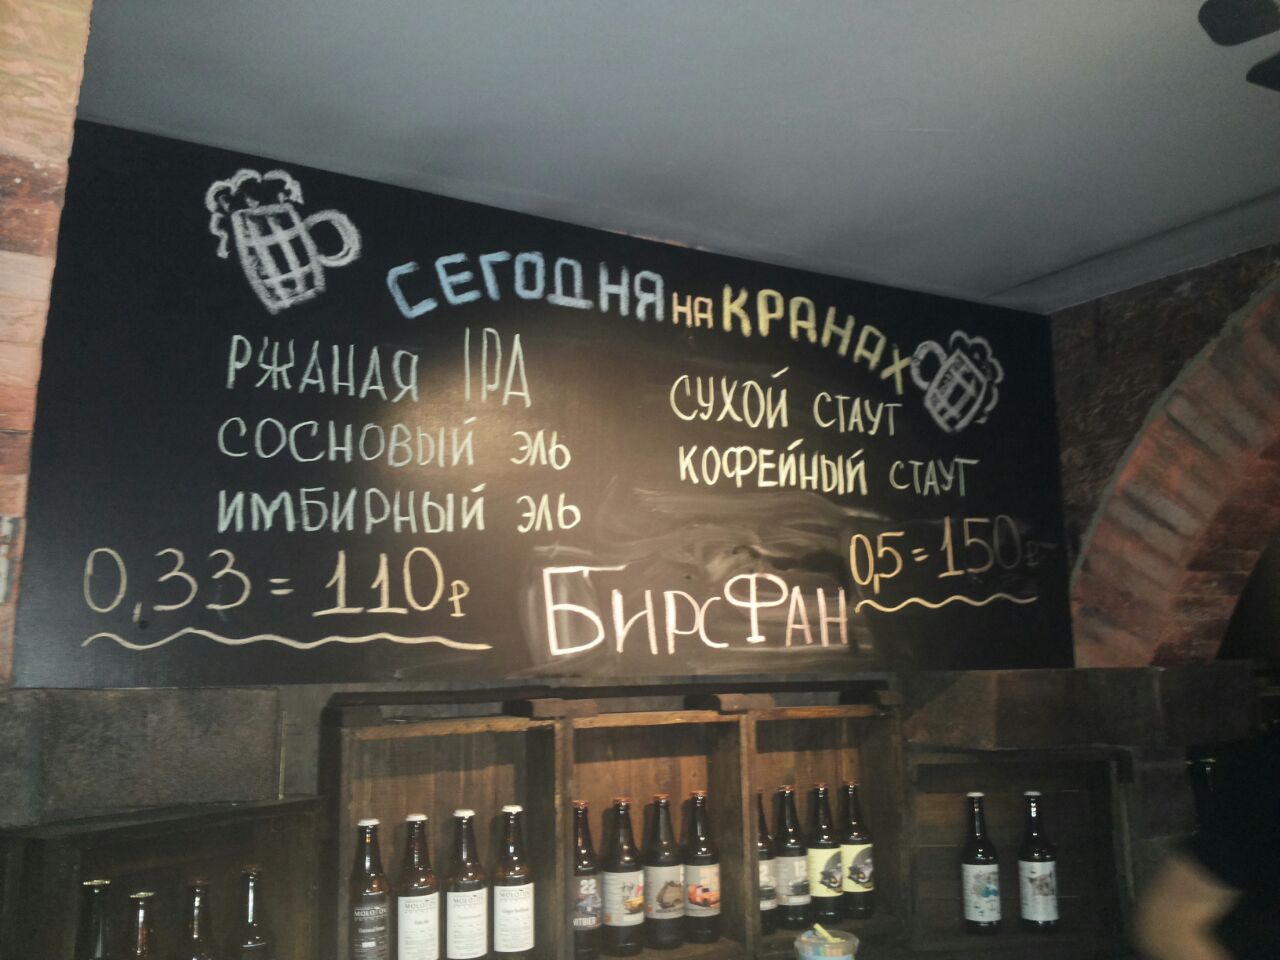 СЕГОДНЯ НА КРАНАХ
РЖАНАЯ IPA
СОСНОВЫЙ ЭЛЬ
ИМБИРНЫЙ ЭЛЬ
0,33 = 110р
СУХОЙ СТАУТ
КОФЕЙНЫЙ СТАУТ
0,5 = 150р
БИРСФАН
MOLOTOV
MOLOTOV
MOLOTOV
MOLOTOV
22
WITBIER
12
12